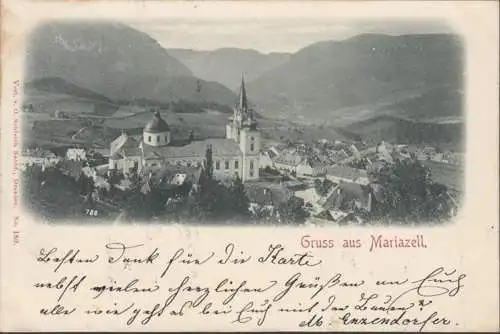 Gruss aus Mariazell.
788
Verl. v. O. Schleich Nachf., Dresden. No. 189.
Besten Dank für Die Karte
nebst vielen herzlichen Grüßen an Euch
alle wie geht es bei Euch mit der
M. Enzendorfer.